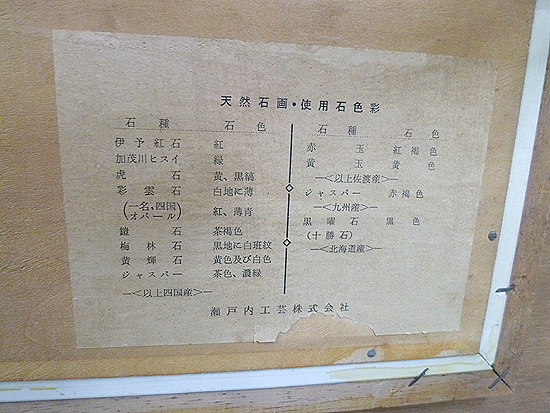 天然石画・使用石色彩
石種 石色
伊予紅石 紅
加茂川ヒスイ 緑
虎石 黄、黒縞
彩雲石 白地に薄
(一名，四国オパール) 紅、薄青
鎧石 茶褐色
梅林石 黒地に白斑紋
黄輝石 黄色及び白色
ジャスパー 茶色、濃緑
―<以上四国産>―
石種 石色
赤玉 紅褐色
黄玉 黄色
―<以上佐渡産>―
ジャスパー 赤褐色
―<九州産>―
黒曜石 黒色
(十勝石)
―<北海道産>―
瀬戸内工芸株式会社